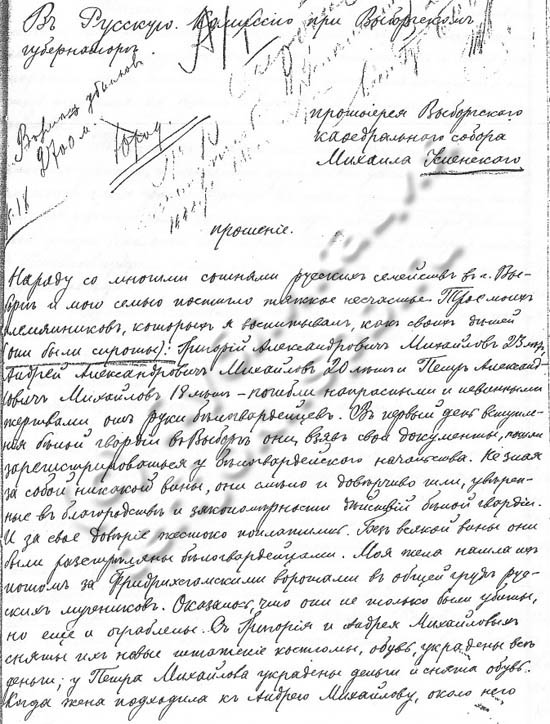 Въ Русскую Комиссію при Выборгскомъ
губернаторѣ.
протоіерея Выборгскаго
каѳедральнаго собора
Михаила Успенскаго
прошеніе.
Наряду со многими сотнями русскихъ семействъ въ г. Вы-
боргѣ и мою семью постигло тяжкое несчастье. Трое моихъ
племянниковъ, которыхъ я воспитывалъ, какъ своихъ дѣтей
(они были сироты): Григорій Александровичъ Михайловъ 23 лѣтъ,
Андрей Александровичъ Михайловъ 20 лѣтъ и Петръ Александ-
ровичъ Михайловъ 18 лѣтъ – погибли напрасными и невинными
жертвами отъ руки бѣлогвардейцевъ. Въ первый день вступле-
нія бѣлой гвардіи въ Выборгъ они, взявъ свои документы, пошли
зарегистрироваться у бѣлогвардейскаго начальства. Не зная
за собой никакой вины, они смѣло и довѣрчиво шли, увѣрен-
ные въ благородствѣ и закономѣрности дѣйствій бѣлой гвардіи.
И за свое довѣріе жестоко поплатились. Безъ всякой вины они
были разстрѣляны бѣлогвардейцами. Моя жена нашла ихъ
потомъ за Фридрихсгамскими воротами въ общей грудѣ рус-
скихъ мучениковъ. Оказалось, что они не только были убиты,
но еще и ограблены. Съ Григорія и Андрея Михайловыхъ
сняты ихъ новые штатскіе костюмы, обувь, украдены всѣ
деньги; у Петра Михайлова украдены деньги и снята обувь.
Когда жена подходила къ Андрею Михайлову, около него